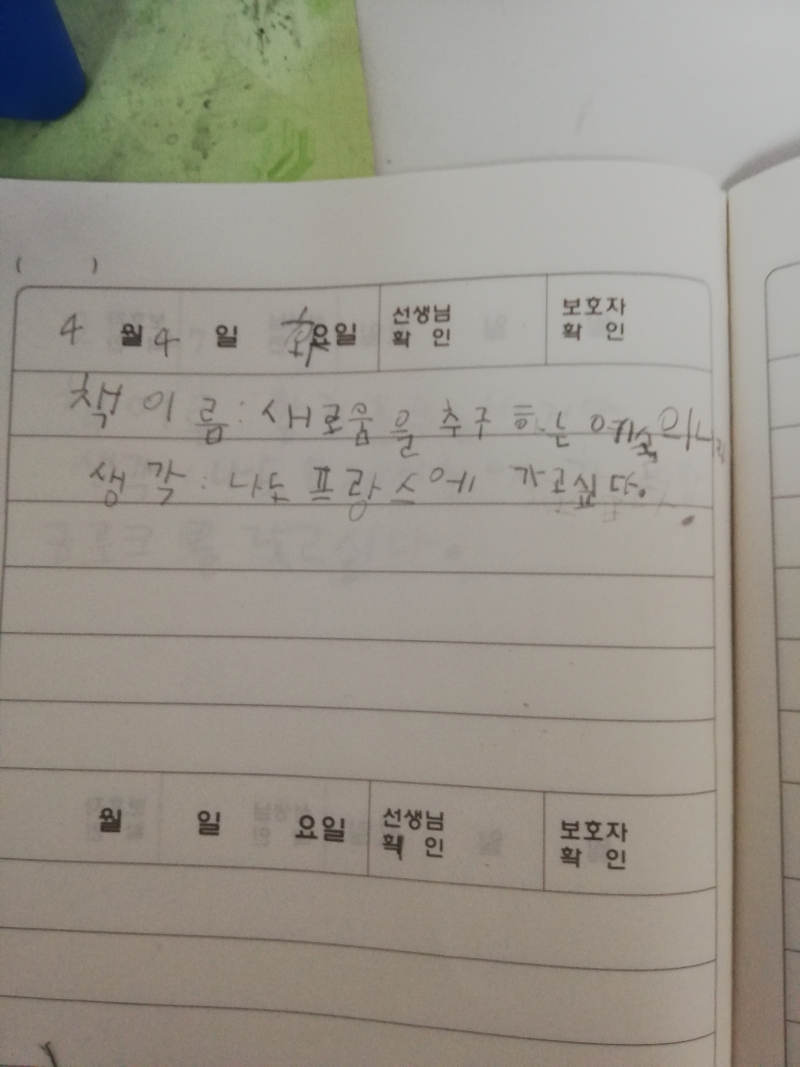 ( )
4 월 4 일 화요일 선생님 확 인 보호자 확 인
책 이름: 새로움을 추구 하는 예술의 나라
생각: 나도 프랑스에 가고싶다.
월 일 요일 선생님 확 인 보호자 확 인